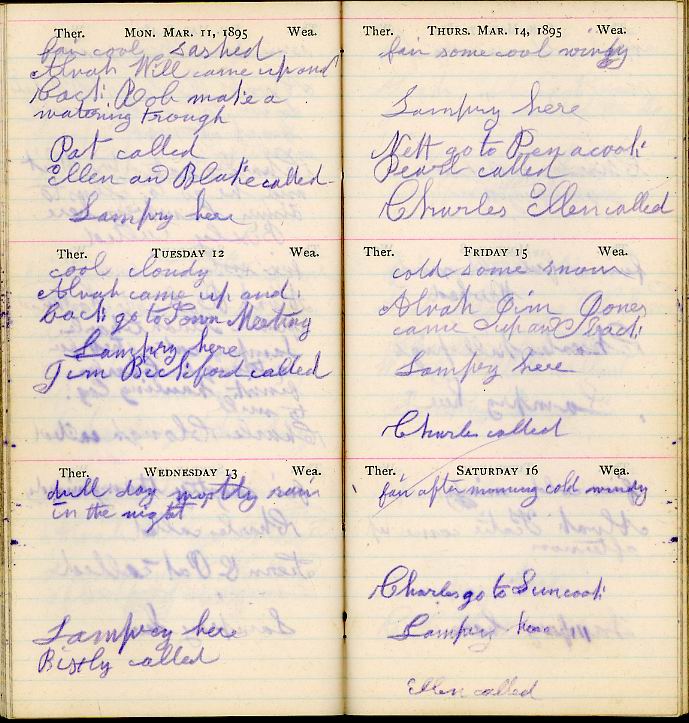 Ther. MON. MAR. 11, 1895 Wea.
fair cool washed
Alvah Will came up and
back Rob make a
watering trough
Pat called
Ellen and Blake called
Lampry here
Ther. TUESDAY 12 Wea.
cool cloudy
Alvah came up and
back go to Town Meeting
Lampry here
Jim Bickford called
Ther. WEDNESDAY 13 Wea.
dull day mostly rain
in the night
Lamprey here
called
Ther. THURS. MAR. 14, 1895 Wea.
fair some cool windy
Lampry here
Nett go to Penacook
Pearl called
Charles Ellen called
Ther. FRIDAY 15 Wea.
cold some snow
Alvah Jim Jones
came up and back
Lampry here
Charles called
Ther. SATURDAY 16 Wea.
fair after morning cold windy
Charles go to Suncook
Lampry here
Ellen called